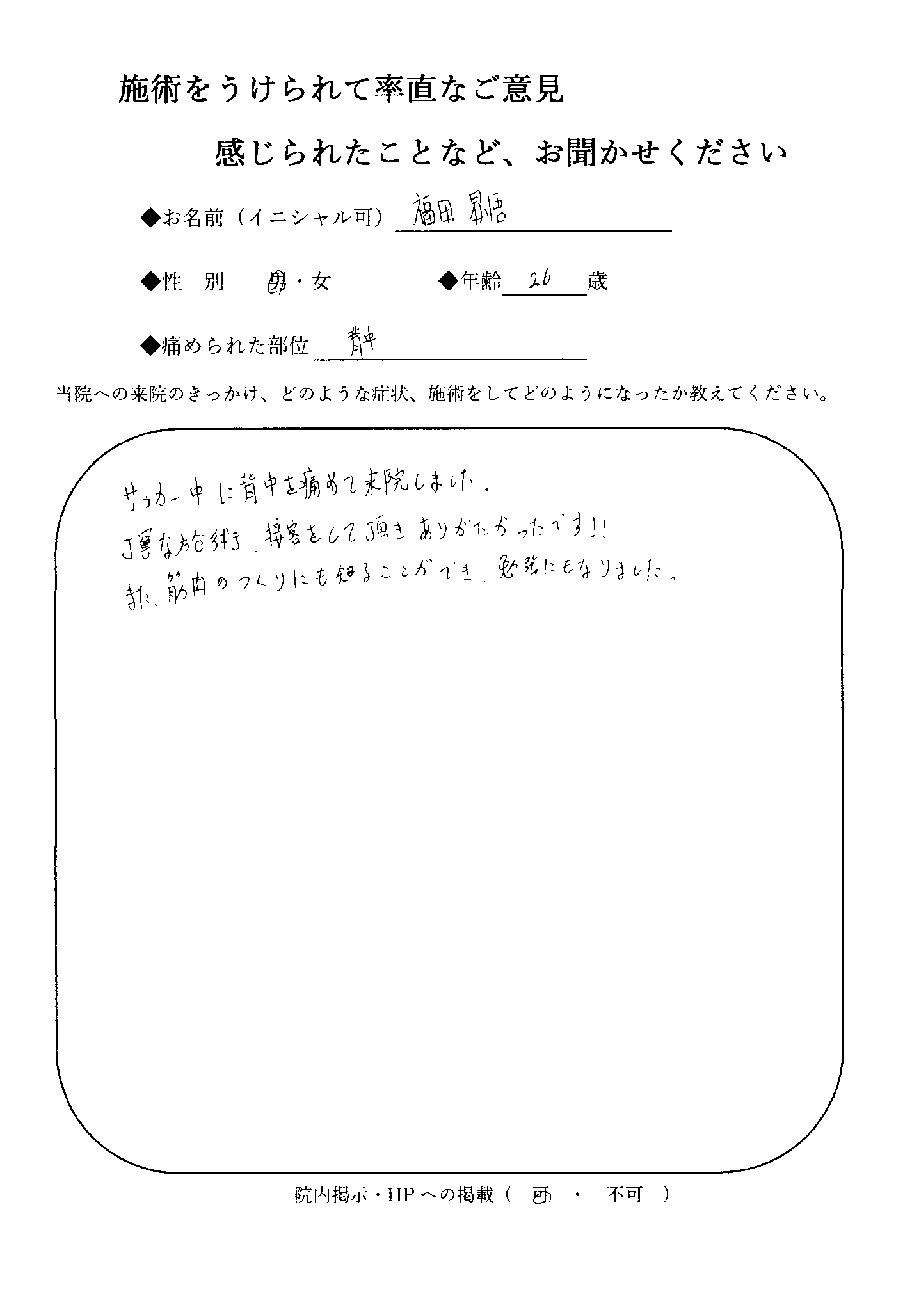 施術をうけられて率直なご意見
感じられたことなど、お聞かせください
◆お名前（イニシャル可） 福田 昇悟
◆性　別　男・女　◆年齢 26 歳
◆痛められた部位 背中
当院への来院のきっかけ、どのような症状、施術をしてどのようになったか教えてください。
サッカー中に背中を痛めて来院しました。
丁寧な施術、接客をして頂きありがたかったです!!
また、筋肉のつくりにも知ることができ、勉強にもなりました。
院内掲示・HPへの掲載（　可　・　不可　）